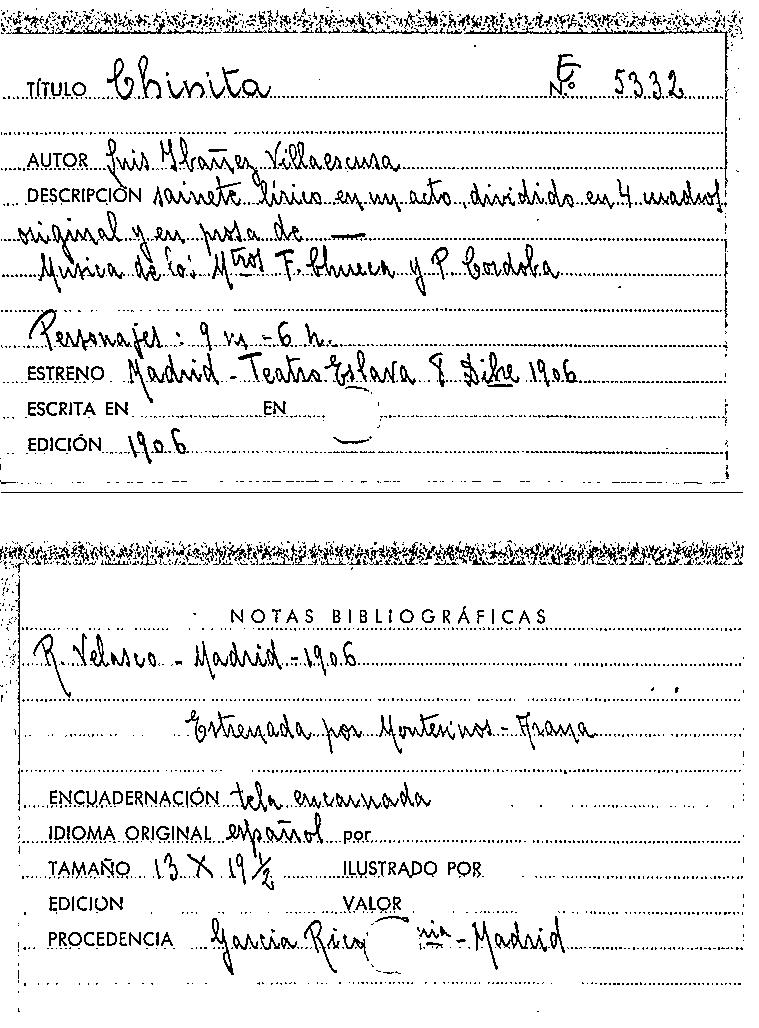 TÍTULO Chinita
E
N.º 5332
AUTOR Luis Ybañez Villaescusa
DESCRIPCIÓN sainete lírico en un acto, dividido en 4 cuadros
original y en prosa de —
Musica de los Mtros F. Chueca y P. Cordoba
Personajes: 9 m - 6 h.
ESTRENO Madrid - Teatro Eslava 8 Dibre 1906
ESCRITA EN EN
EDICIÓN 1906
NOTAS BIBLIOGRÁFICAS
R. Velasco - Madrid - 1906
Estrenada por Montesinos - Arana
ENCUADERNACIÓN tela encarnada
IDIOMA ORIGINAL español por
TAMAÑO 13 X 19 1/2 ILUSTRADO POR
EDICIÓN VALOR
PROCEDENCIA Garcia Rico nia - Madrid